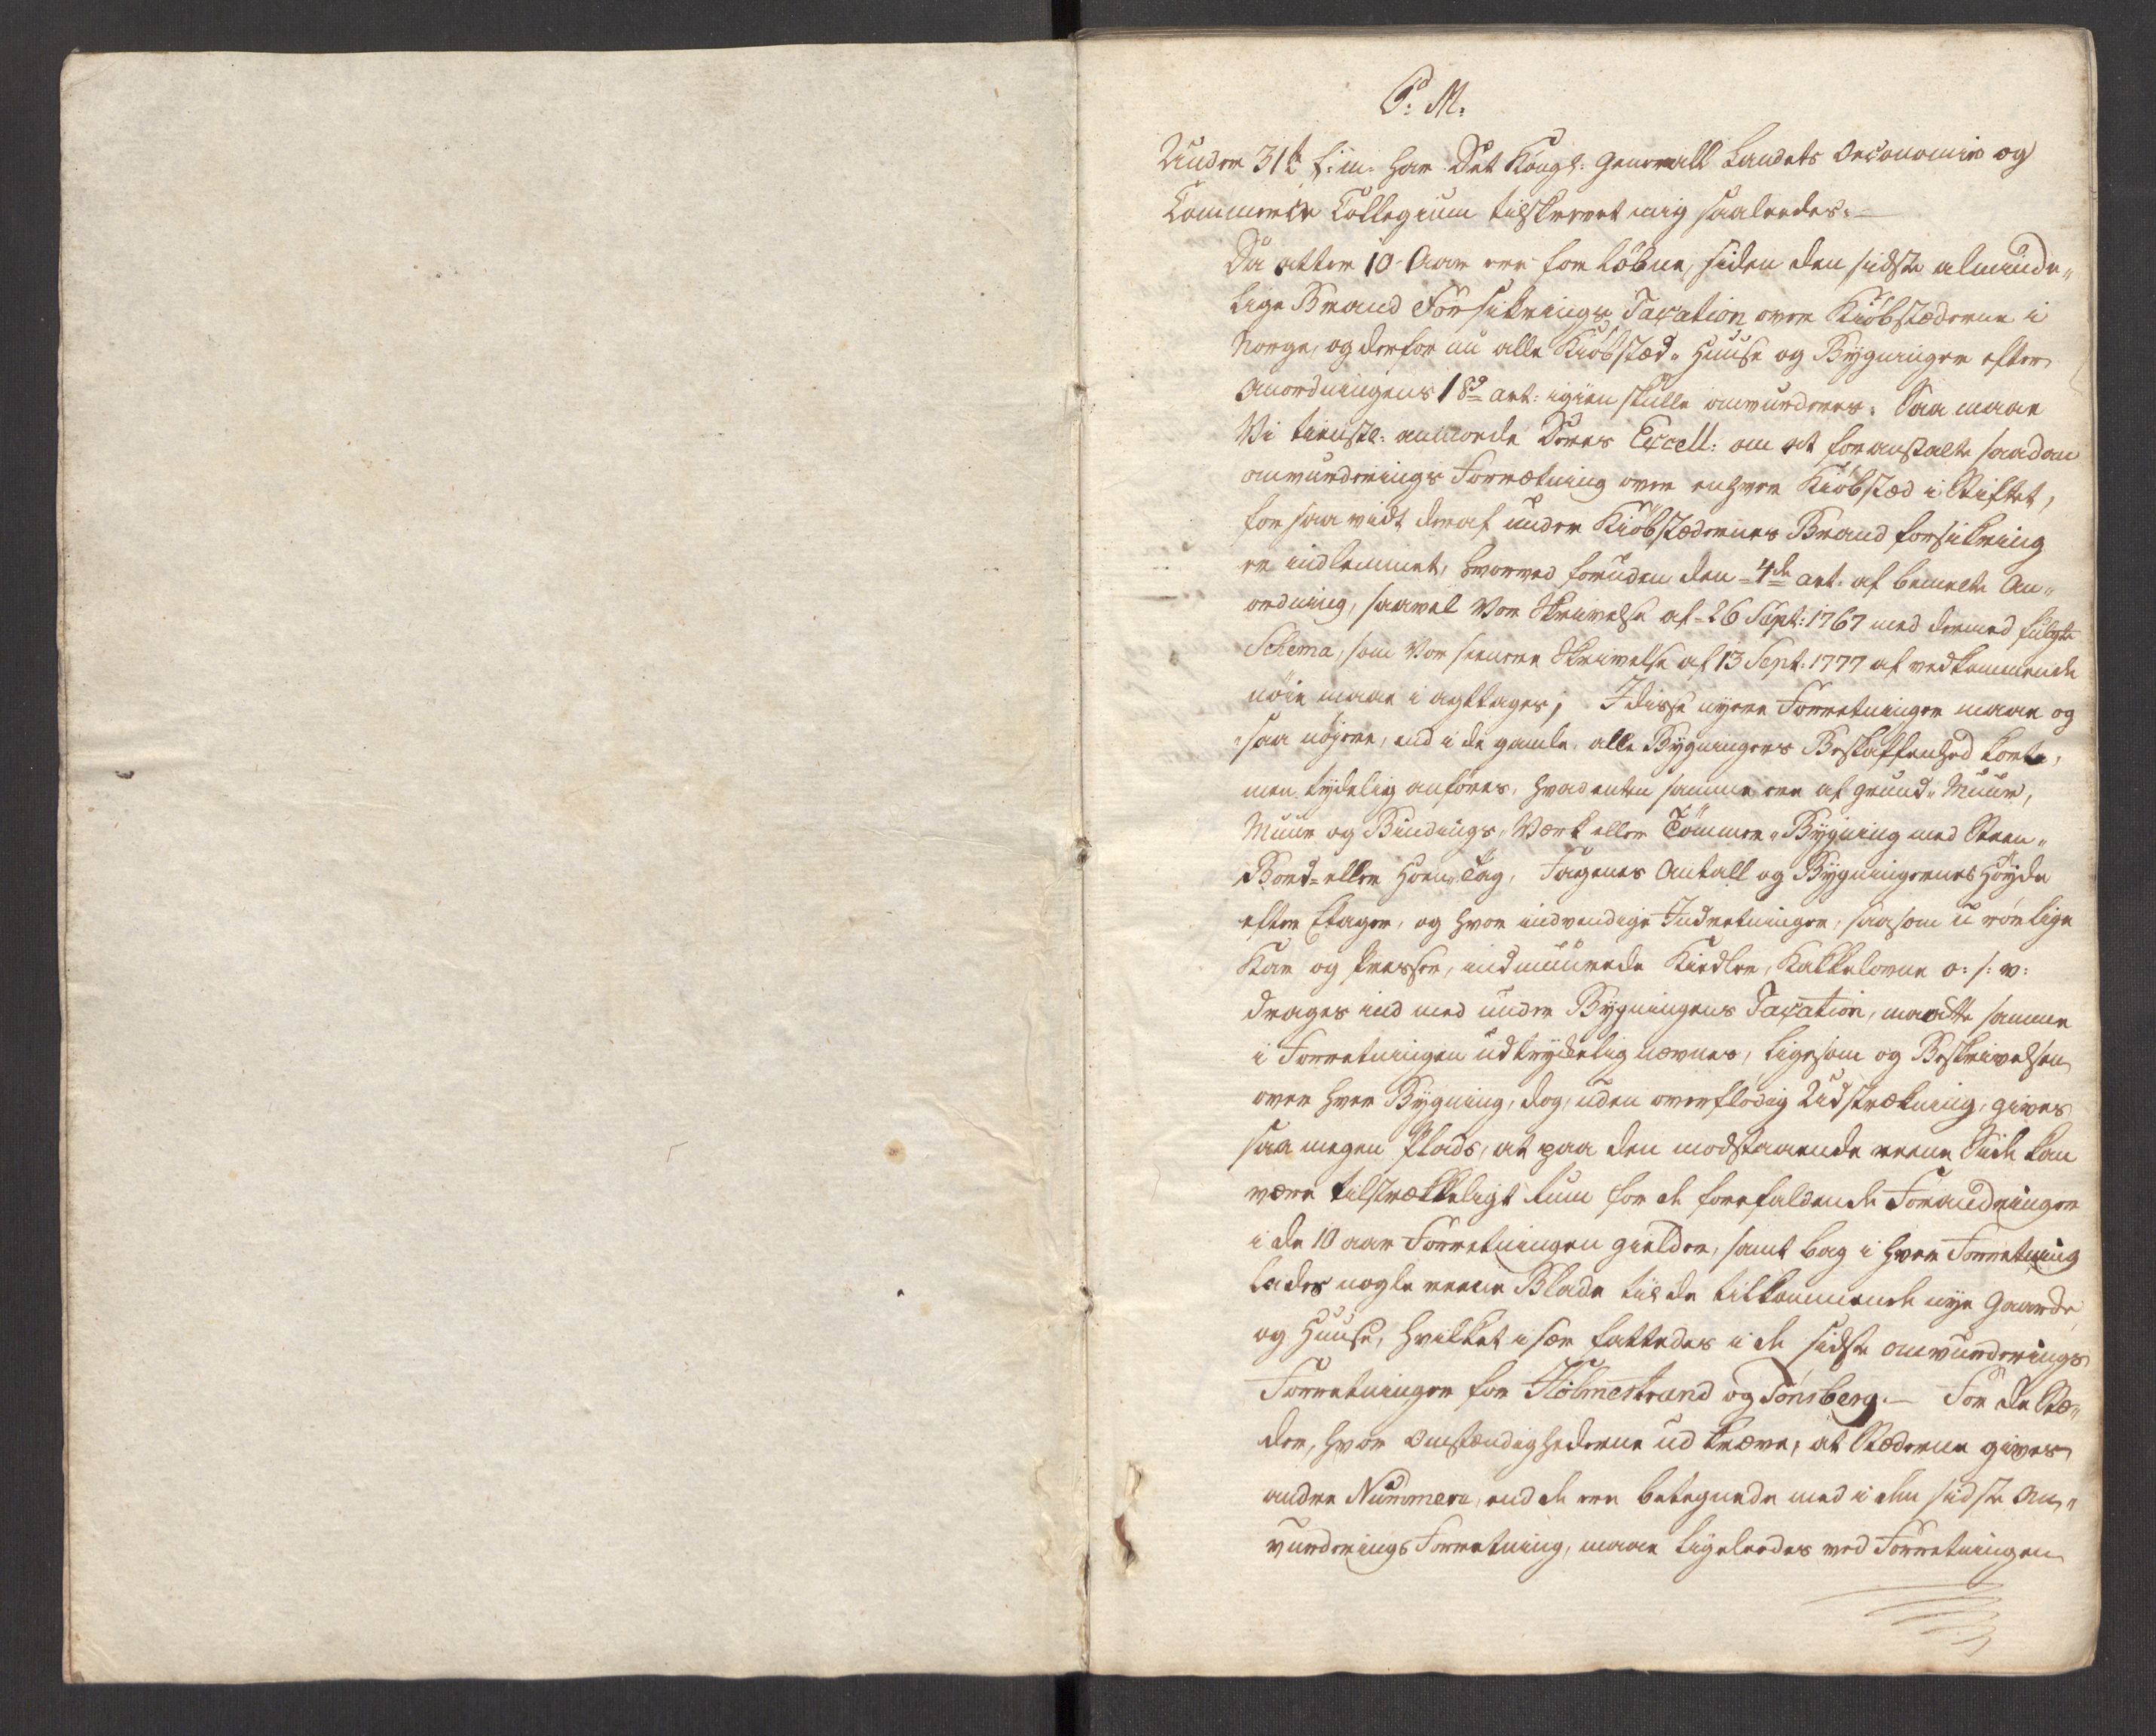 P. M.
Under 31te f: m: har Det Kongl: Generall Landets Oeconomie og
Commerce Collegium tilskrevet mig saaledes:
Da atter 10 Aar ere forløbne, siden den sidste alminde„
lige Brand Forsikrings Taxation over Kiøbstæderne i
Norge, og derfor nu alle Kiøbstæd„ Huuse og Bygninger efter
Anordningens 18de art: igien skulle omvurderes: Saa maae
Vi tienstl: anmode Deres Excell: om at foranstalte saadan
omvurderings Forrætning over enhver Kiøbstæd i Stiftet,
for saavidt deraf under Kiøbstædernes Brand forsikring
er indlemmet, hvorved foruden den 4de art: af bemelte An„
ordning, saavel Vor Skrivelse af 26 Sept: 1767 med dermed fulgte
Schema, som Vor seenere Skrivelse af 13 Sept: 1777 af vedkommende
nøie maae iagttages; I disse nyere Forretninger maae og
„saa nøjere, end i de gamle, alle Bygningers Beskaffenhed korte,
men tydelig anføres, hvad enten samme ere af grund„ Muur,
Muur og Bindings„ Værk eller Tømmer„ Bygning med Steen„
Bord= eller Horn„ Tag, Fagenes Antall og Bygningernes Høyde
efter Etager, og hvor indvendige Indretninger, saasom u rørlige
Kar og Presser, indmuurede Kiedler, Kakkelovne o: s: v:
drages ind med under Bygningens Taxation, maatte samme
i Forretningen udtrykkelig nævnes, ligesom og Beskrivelsen
over hver Bygning, dog, uden overflødig Udstrækning, gives
saa megen Plads, at paa den modstaaende reene Side kan
være tilstrækkeligt Rum for de forefaldende Forandringer
i de 10 aar Forretningen gielder, samt bag i hver Forretning
lades nogle reene Blade til de tilkommende nye Gaarde
og Huuse, hvilket især fattedes i de sidste omvurderings
Forretninger for Holmestrand og Tønsberg. — For de Stæ„
der, hvor Omstændighederne udkræve, at Stæderne gives
andre Nummere, end de ere betegnede med i den sidste Om„
vurderings Forretning, maae ligeledes ved Forretningen